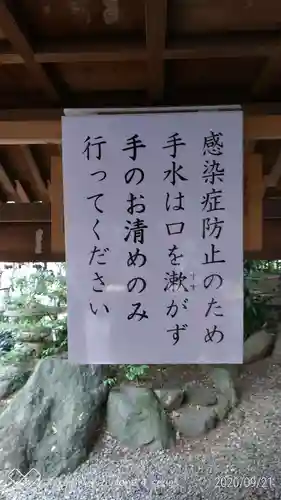 感染症防止のため
手水は口を漱がず
手のお清めのみ
行ってください
すす
2020/09/21